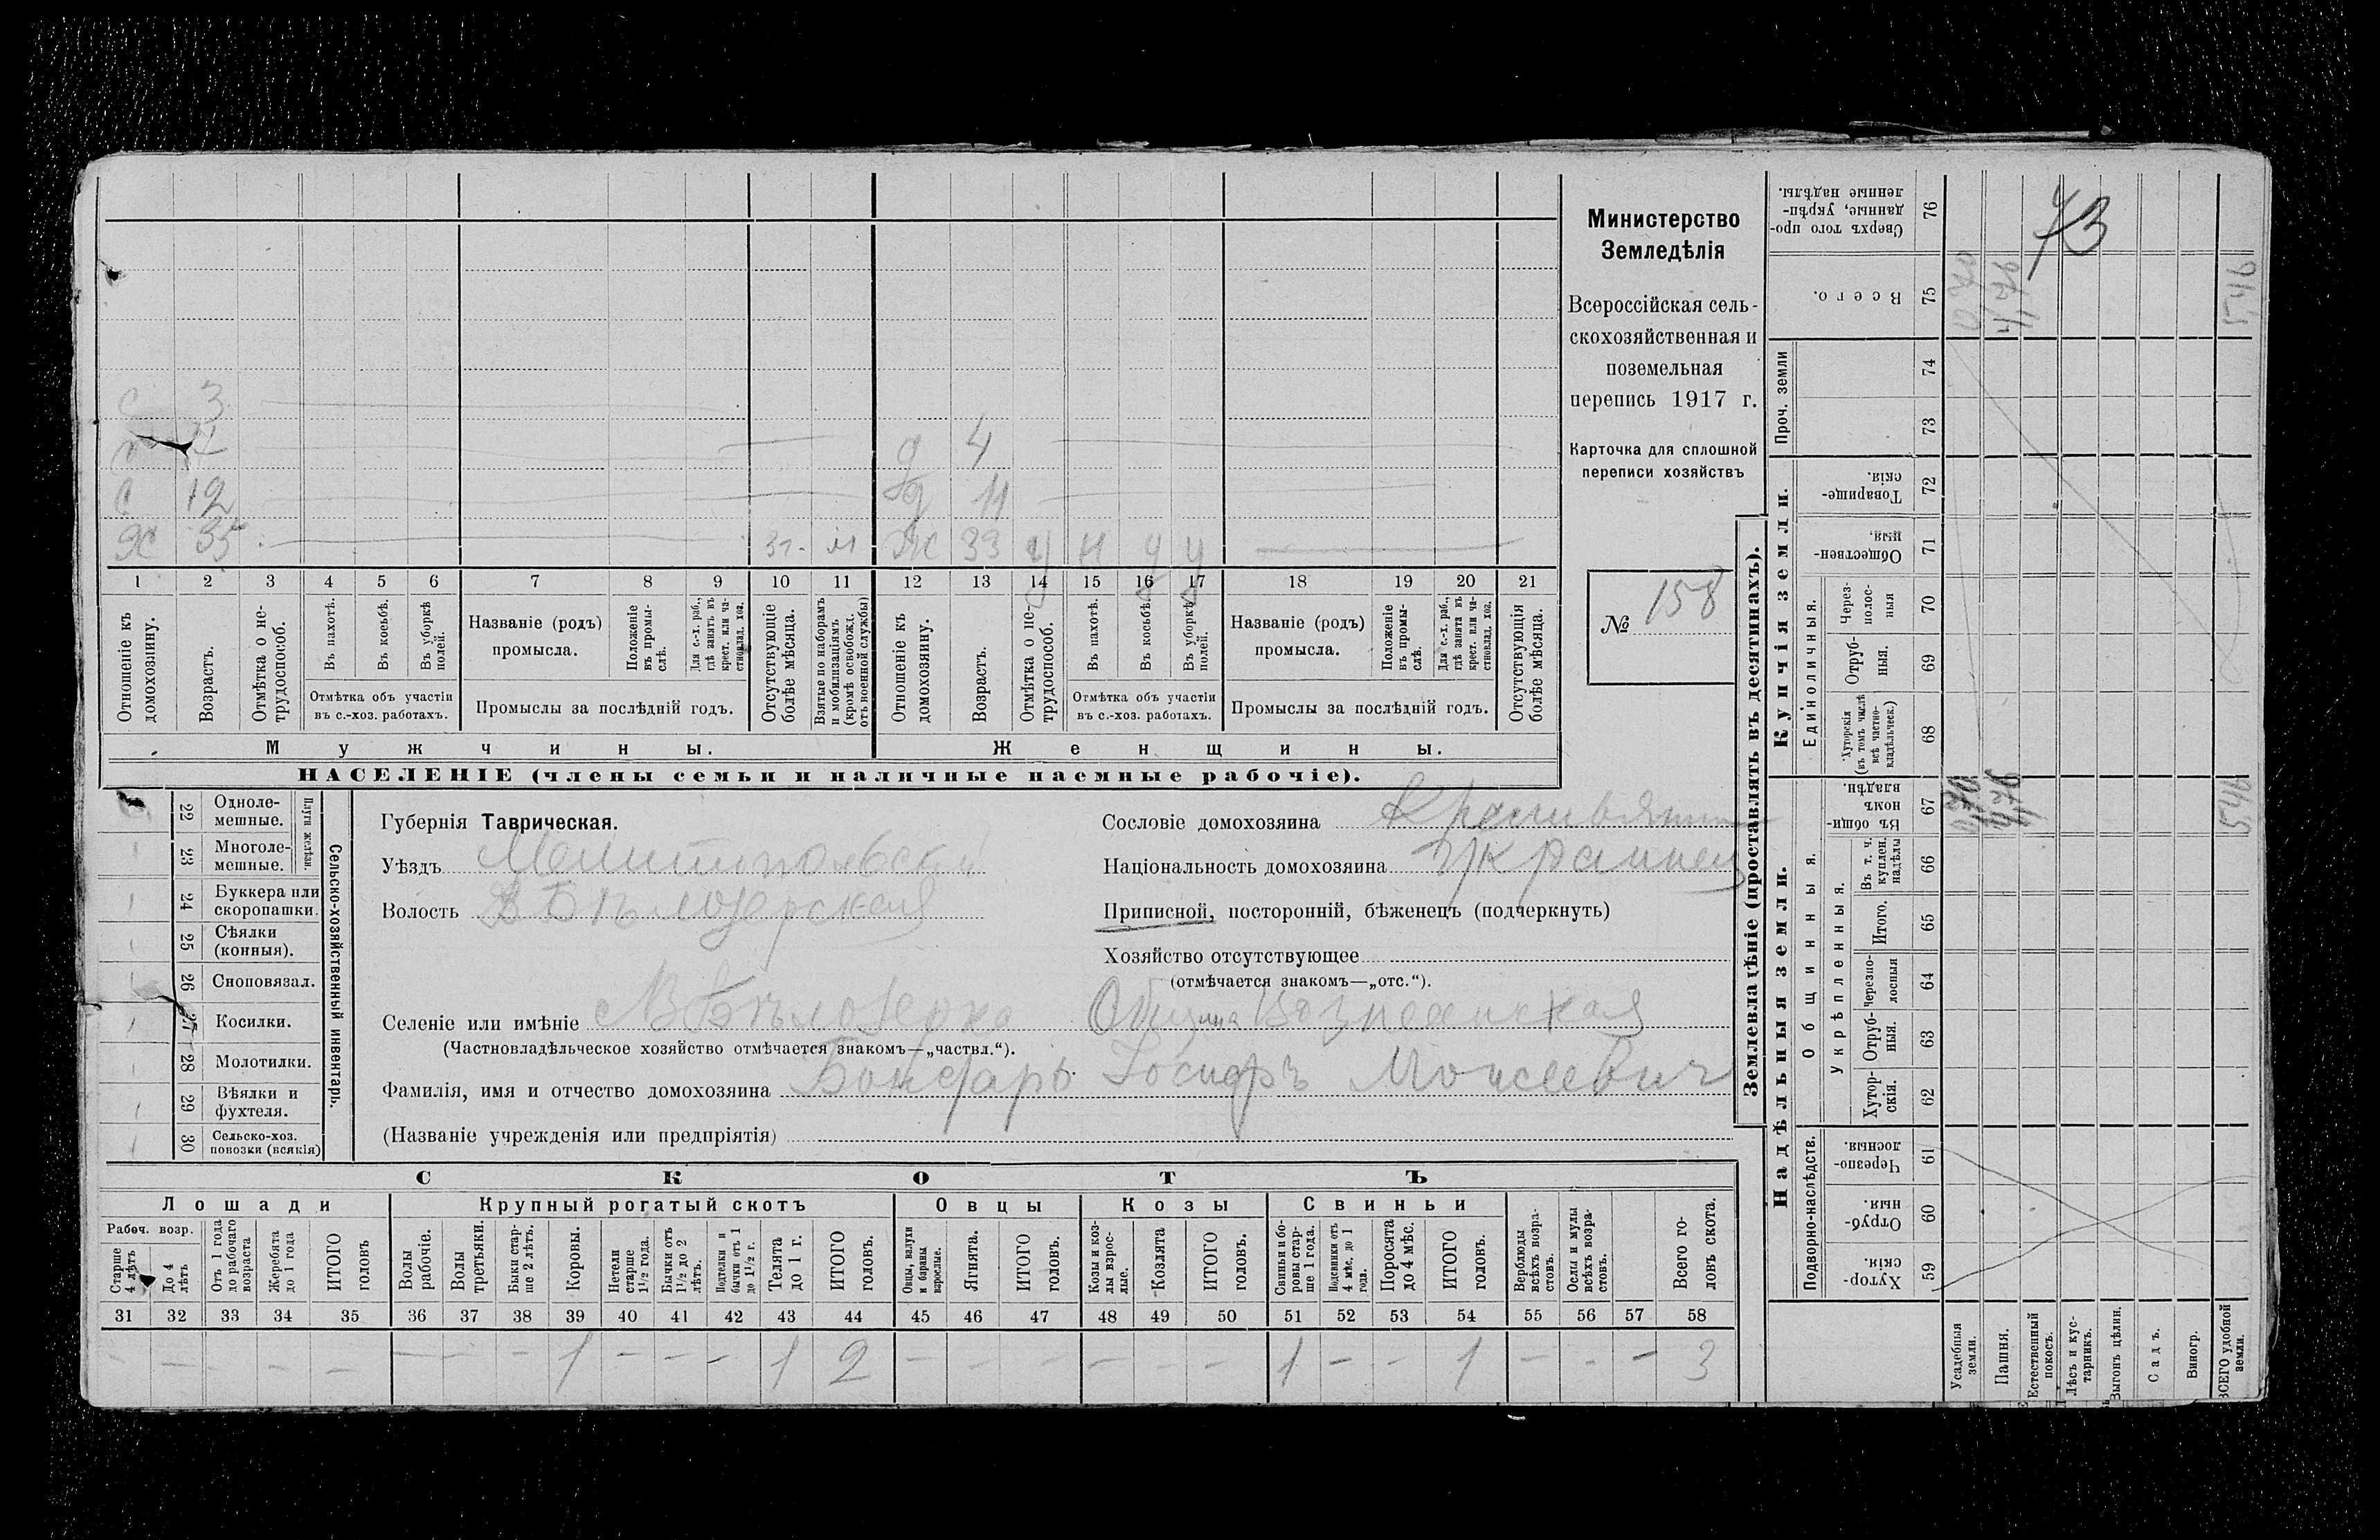 73
Министерство
Земледѣлія
Всероссійская сель-
скохозяйственная и
поземельная
перепись 1917 г.
Карточка для сплошной
переписи хозяйствъ
№ 158
с 3
д 4
с 12 д 11
Ж 35 Ж 33
1 2 3 4 5 6 7 8 9 10 11 12 13 14 15 16 17 18 19 20 21
Отношеніе къ домохозяину.
Возрастъ.
Отмѣтка о не-трудоспособ.
Въ пахотѣ.
Въ косьбѣ.
Въ уборкѣ полей.
Отмѣтка объ участіи
въ с.-хоз. работахъ.
Названіе (родъ)
промысла.
Положеніе въ промы-слѣ.
Для с.-х. раб., гдѣ занятъ въ крест. или ча-стновлад. хоз.
Промыслы за послѣдній годъ.
Отсутствующіе болѣе мѣсяца.
Взятые по наборамъ и мобилизаціямъ (кромѣ освобожд. отъ военной службы)
Отношеніе къ домохозяину.
Возрастъ.
Отмѣтка о не-трудоспособ.
Въ пахотѣ.
Въ косьбѣ.
Въ уборкѣ полей.
Отмѣтка объ участіи
въ с.-хоз. работахъ.
Названіе (родъ)
промысла.
Положеніе въ промы-слѣ.
Для с.-х. раб., гдѣ занята въ крест. или ча-стновлад. хоз.
Промыслы за послѣдній годъ.
Отсутствующія болѣе мѣсяца.
Мужчины. Женщины.
НАСЕЛЕНІЕ (члены семьи и наличные наемные рабочіе).
Сельско-хозяйственный инвентарь.
Плуги желѣзн.
22 Однолемешные.
23 Многолемешные.
24 Буккера или скоропашки.
25 Сѣялки (конныя).
26 Сноповязал.
27 Косилки.
28 Молотилки.
29 Вѣялки и фухтеля.
30 Сельско-хоз. повозки (всякія)
Губернія Таврическая.
Уѣздъ Мелитопольскій
Волость В Бѣлозерская
Селеніе или имѣніе М Бѣлозерка Община Вознесенская
(Частновладѣльческое хозяйство отмѣчается знакомъ—„частвл.“).
Фамилія, имя и отчество домохозяина Бондарь Іосифъ Моисеевич
(Названіе учрежденія или предпріятія)
Сословіе домохозяина Крестьянин
Національность домохозяина Украинец
Приписной, посторонній, бѣженецъ (подчеркнуть)
Хозяйство отсутствующее
(отмѣчается знакомъ—„отс.“).
СКОТЪ
Лошади Крупный рогатый скотъ Овцы Козы Свиньи
Рабоч. возр.
Старше 4 лѣтъ
До 4 лѣтъ
Отъ 1 года до рабочаго возраста
Жеребята до 1 года
ИТОГО головъ
Волы рабочіе.
Волы третьяки.
Быки стар-ше 2 лѣтъ.
Коровы.
Нетели старше 1½ года.
Бычки отъ 1½ до 2 лѣтъ.
Подтелки и бычки отъ 1 до 1½ г.
Телята до 1 г.
ИТОГО головъ.
Овцы, валухи и бараны взрослые.
Ягнята.
ИТОГО головъ.
Козы и коз-лы взрос-лые.
Козлята
ИТОГО головъ.
Свиньи и бо-ровы стар-ше 1 года.
Подсвинки отъ 4 мѣс. до 1 года.
Поросята до 4 мѣс.
ИТОГО головъ.
Верблюды всѣхъ возра-стовъ.
Ослы и мулы всѣхъ возра-стовъ.
Всего го-ловъ скота.
31 32 33 34 35 36 37 38 39 40 41 42 43 44 45 46 47 48 49 50 51 52 53 54 55 56 57 58
– – – – – – – – 1 – – – 1 2 – – – – – – 1 – – 1 – – – 3
Землевладѣніе (проставлять въ десятинахъ).
Надѣльныя земли.
Купчія земли.
Проч. земли
Подворно-наслѣдств.
Общинныя.
Укрѣпленныя.
Единоличныя.
Сверхъ того про-данные, укрѣп-ленные надѣлы. 76
Всего. 75
74
73
Товарище-скія. 72
Обществен-ныя. 71
Через-полос-ныя 70
Отруб-ныя. 69
Хуторскія (въ томъ числѣ всѣ частно-владѣльческ.) 68
Въ общи-номъ владѣн. 67
Въ т. ч. куплен. надѣлы 66
Итого. 65
Черезпо-лосныя 64
Отруб-ныя. 63
Хутор-скія. 62
Черезпо-лосныя. 61
Отруб-ныя. 60
Хутор-скія. 59
Усадебныя земли.
Пашня.
Естественный покосъ.
Лѣсъ и кус-тарникъ.
Выгонъ цѣлин.
Садъ.
Виногр.
ВСЕГО удобной земли.